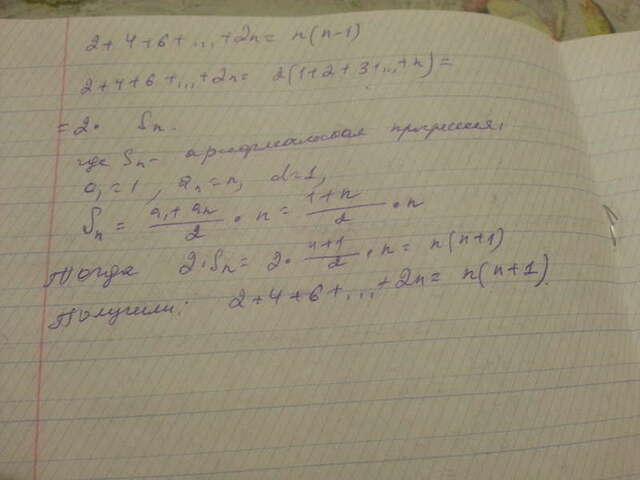 2+4+6+...+2n= n(n-1)
2+4+6+...+2n= 2(1+2+3+...+n)=
=2· Sn.
где Sn- арифметическая прогрессия,
a₁=1, an=n, d=1,
Sn = (a₁+an)/2 · n = (1+n)/2 · n
Тогда 2·Sn= 2· (n+1)/2 · n= n(n+1)
Получили: 2+4+6+...+2n= n(n+1)